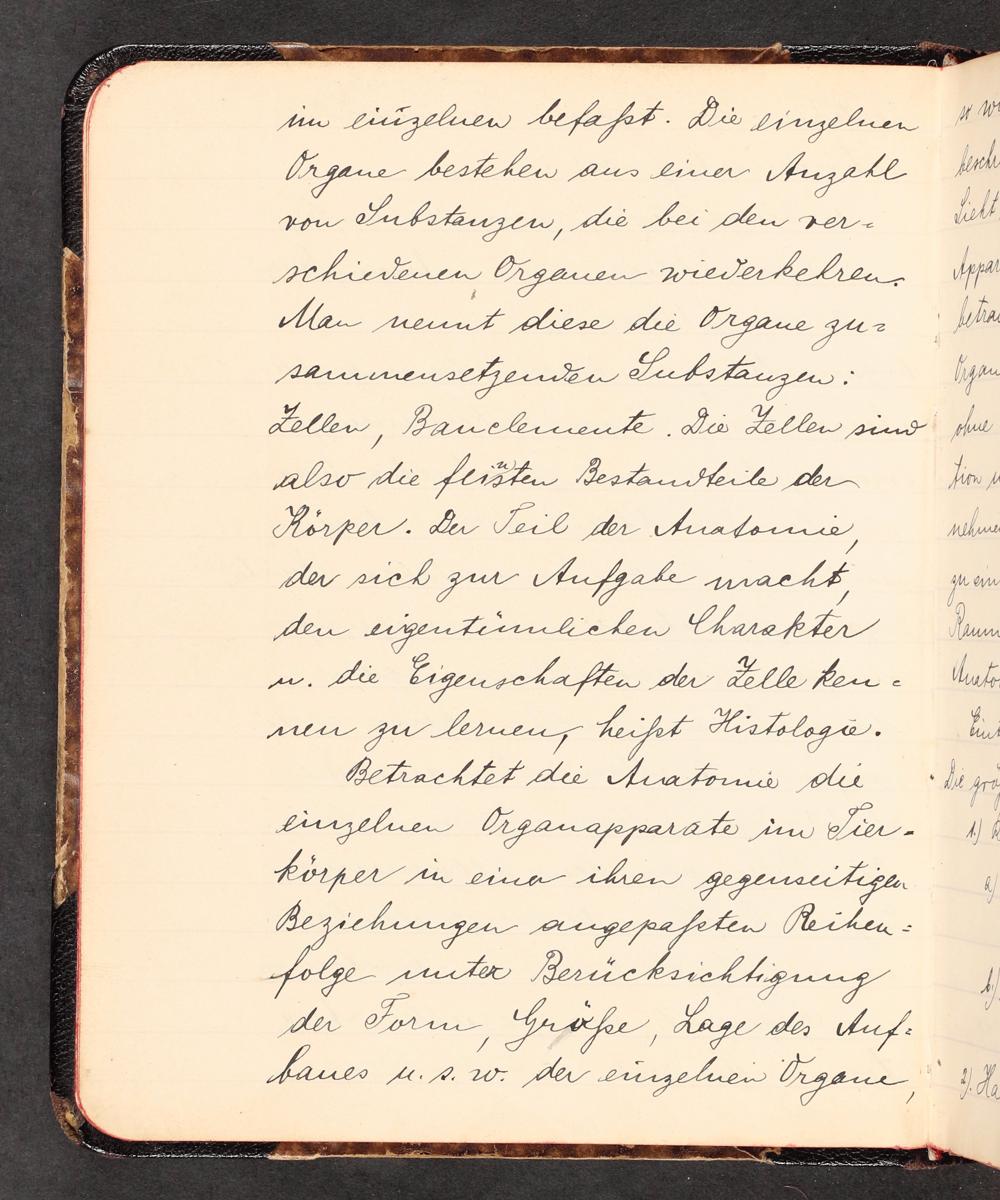 im einzelnen befaßt. Die einzelnen
Organe bestehen aus einer Anzahl
von Substanzen, die bei den ver=
schiedenen Organen wiederkehren.
Man nennt diese die Organe zu=
sammensetzenden Substanzen:
Zellen, Bauelemente. Die Zellen sind
also die Bestandteile der
Körper. Der Teil der Anatomie,
der sich zur Aufgabe macht,
den eigentümlichen Charakter
u. die Eigenschaften der Zelle ken=
nen zu lernen, heißt Histologie.
Betrachtet die Anatomie die
einzelnen Organapparate im Tier=
körper in einer ihren gegenseitigen
Beziehungen angepaßten Reihen=
folge unter Berücksichtigung
der Form, Größe, Lage des Auf=
baues u. s. w. der einzelnen Organe,
beschr
Appar
betra
Organ
ohne
tion
nehme
zu ein
Raum
Anato
Eint
Die grö
1.)
a)
b.)
2). Ha